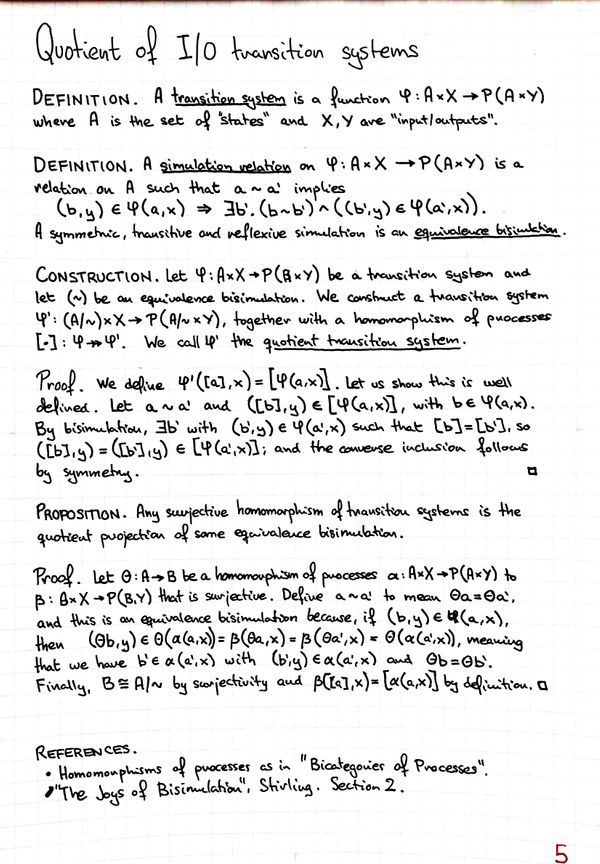 Quotient of I/O transition systems
DEFINITION. A transition system is a function φ : A×X → P(A×Y)
where A is the set of "states" and X,Y are "input/outputs".
DEFINITION. A simulation relation on φ : A×X → P(A×Y) is a
relation on A such that a ~ a' implies
(b,y) ∈ φ(a,x) ⇒ ∃b'. (b~b') ∧ ((b',y) ∈ φ(a',x)).
A symmetric, transitive and reflexive simulation is an equivalence bisimulation.
CONSTRUCTION. Let φ : A×X → P(A×Y) be a transition system and
let (~) be an equivalence bisimulation. We construct a transition system
φ' : (A/~)×X → P(A/~×Y), together with a homomorphism of processes
[•] : φ ↠ φ'. We call φ' the quotient transition system.
Proof. We define φ'([a],x) = [φ(a,x)]. Let us show this is well
defined. Let a ~ a' and ([b],y) ∈ [φ(a,x)], with b ∈ φ(a,x).
By bisimulation, ∃b' with (b',y) ∈ φ(a',x) such that [b]=[b'], so
([b],y) = ([b'],y) ∈ [φ(a',x)]; and the converse inclusion follows
by symmetry. □
PROPOSITION. Any surjective homomorphism of transition systems is the
quotient projection of some equivalence bisimulation.
Proof. Let θ : A→B be a homomorphism of processes α : A×X→P(A×Y) to
β : B×X→P(B,Y) that is surjective. Define a~a' to mean θa = θa',
and this is an equivalence bisimulation because, if (b,y) ∈ α(a,x),
then (θb,y) ∈ θ(α(a,x)) = β(θa,x) = β(θa',x) = θ(α(a',x)), meaning
that we have b' ∈ α(a',x) with (b',y) ∈ α(a',x) and θb = θb'.
Finally, B ≅ A/~ by surjectivity and β([a],x) = [α(a,x)] by definition. □
REFERENCES.
• Homomorphisms of processes as in "Bicategories of Processes".
• "The Joys of Bisimulation", Stirling. Section 2.
5